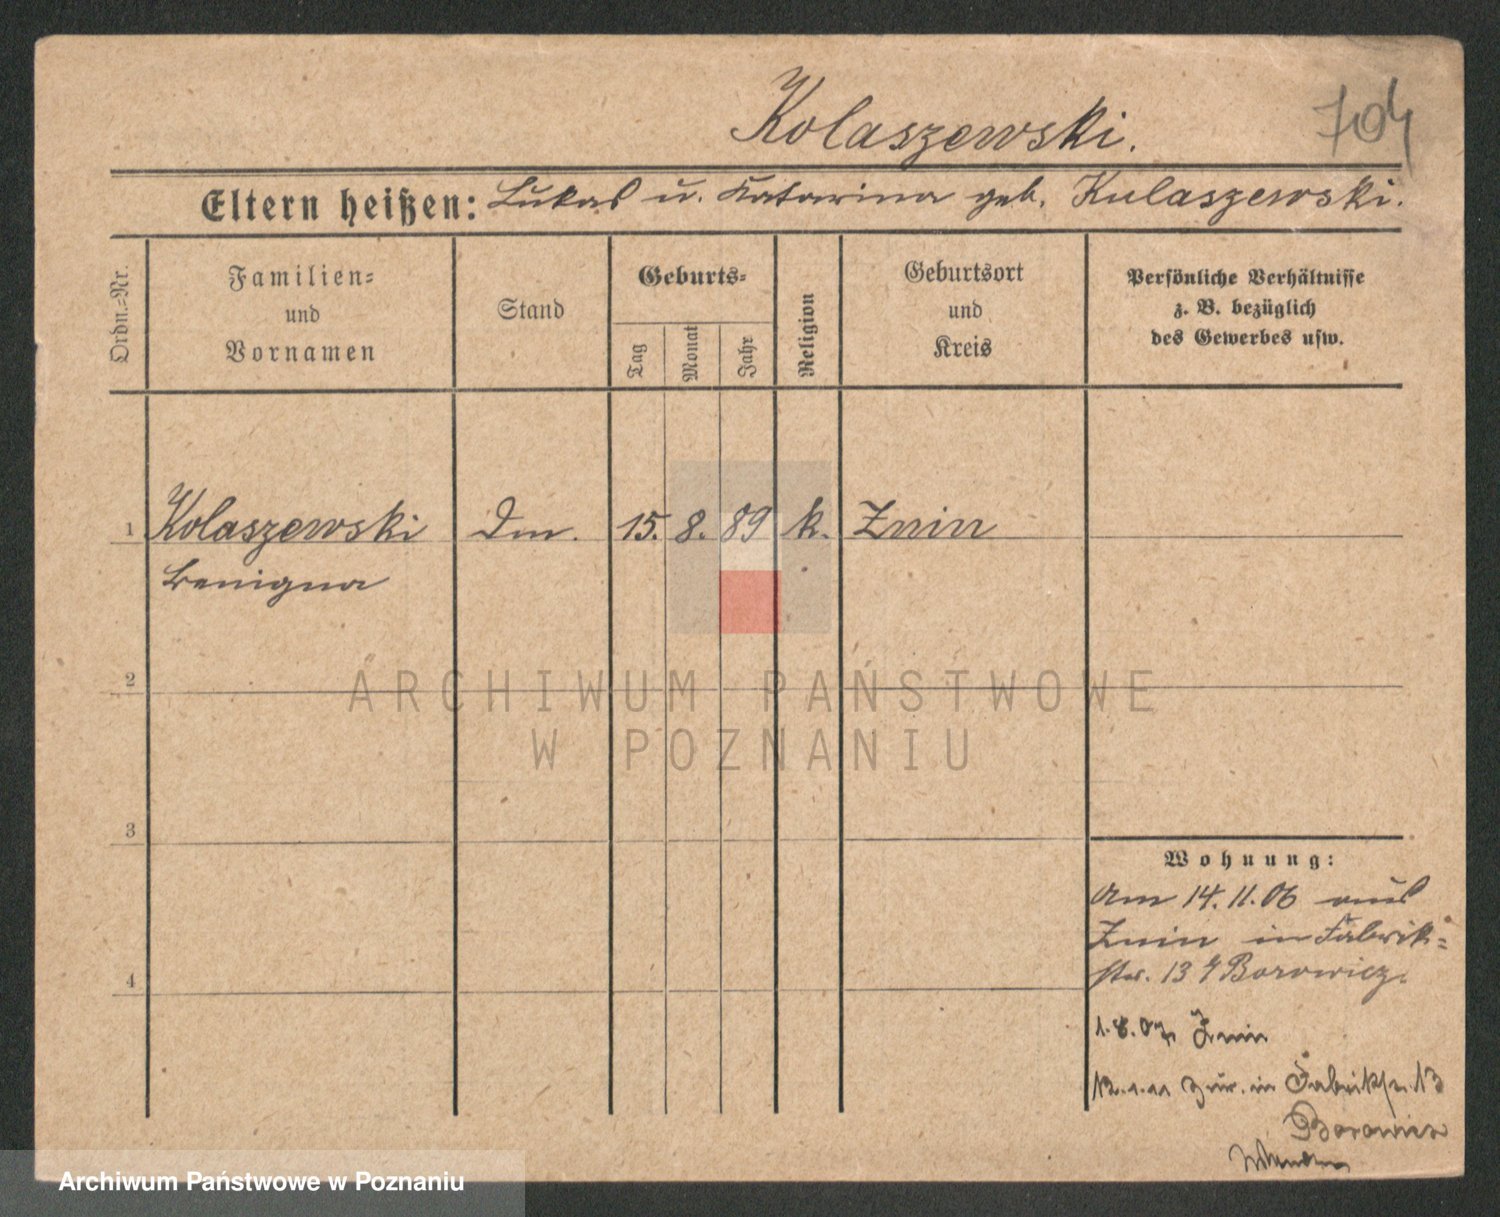 Kolaszewski.
704
Eltern heißen: Lukas u. Katarina geb. Kulaszewski.
Ordn.=Nr.
Familien=
und
Vornamen
Stand
Geburts=
Tag
Monat
Jahr
Religion
Geburtsort
und
Kreis
Persönliche Verhältnisse
z. B. bezüglich
des Gewerbes usw.
1 Kolaszewski Dm. 15. 8. 89 k. Znin
Benigna
2
3
4
Wohnung:
Am 14. 11. 06 aus
Znin in Fabrik=
str. 13 b/ Borowicz.
1. 8. 07 Znin
12. 1. 11 zur. in Fabrikstr. 13
Borowicz
ARCHIWUM PAŃSTWOWE
W POZNANIU
Archiwum Państwowe w Poznaniu